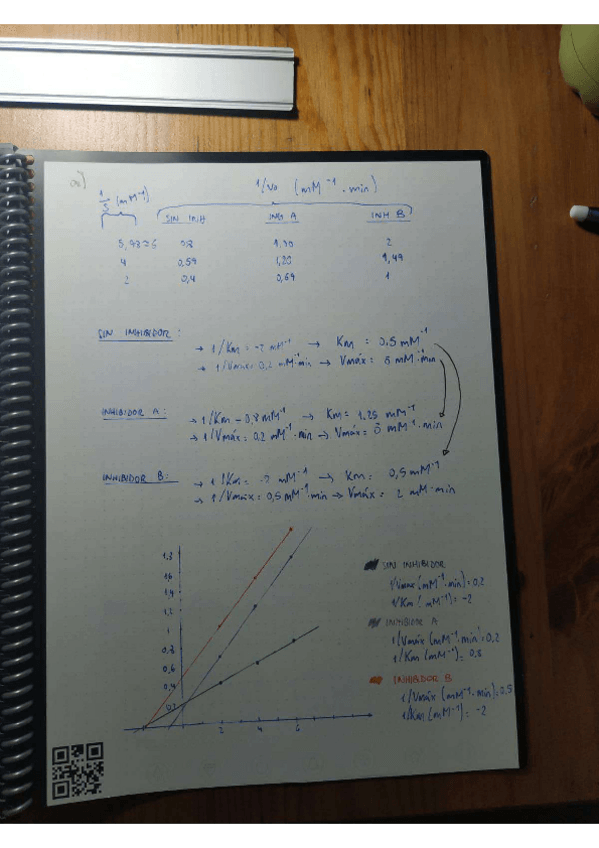 a)
1/S (mM⁻¹) 1/V₀ (mM⁻¹ · min)
SIN INH INH A INH B
5,98≃6 0,8 1,70 2
4 0,59 1,20 1,49
2 0,4 0,69 1
SIN INHIBIDOR:
→ 1/Km = -2 mM⁻¹ → Km = 0,5 mM⁻¹
→ 1/Vmáx = 0,2 mM⁻¹·min → Vmáx = 5 mM⁻¹·min
INHIBIDOR A:
→ 1/Km = 0,8 mM⁻¹ → Km = 1,25 mM⁻¹
→ 1/Vmáx = 0,2 mM⁻¹·min → Vmáx = 5 mM⁻¹·min
INHIBIDOR B:
→ 1/Km = -2 mM⁻¹ → Km = 0,5 mM⁻¹
→ 1/Vmáx = 0,5 mM⁻¹·min → Vmáx = 2 mM·min
1,8
1,6
1,4
1,2
1
0,8
0,6
0,4
0,2
2 4 6
SIN INHIBIDOR
1/Vmáx (mM⁻¹·min) = 0,2
1/Km (mM⁻¹) = -2
INHIBIDOR A
1/Vmáx (mM⁻¹·min) = 0,2
1/Km (mM⁻¹) = 0,8
INHIBIDOR B
1/Vmáx (mM⁻¹·min) = 0,5
1/Km (mM⁻¹) = -2